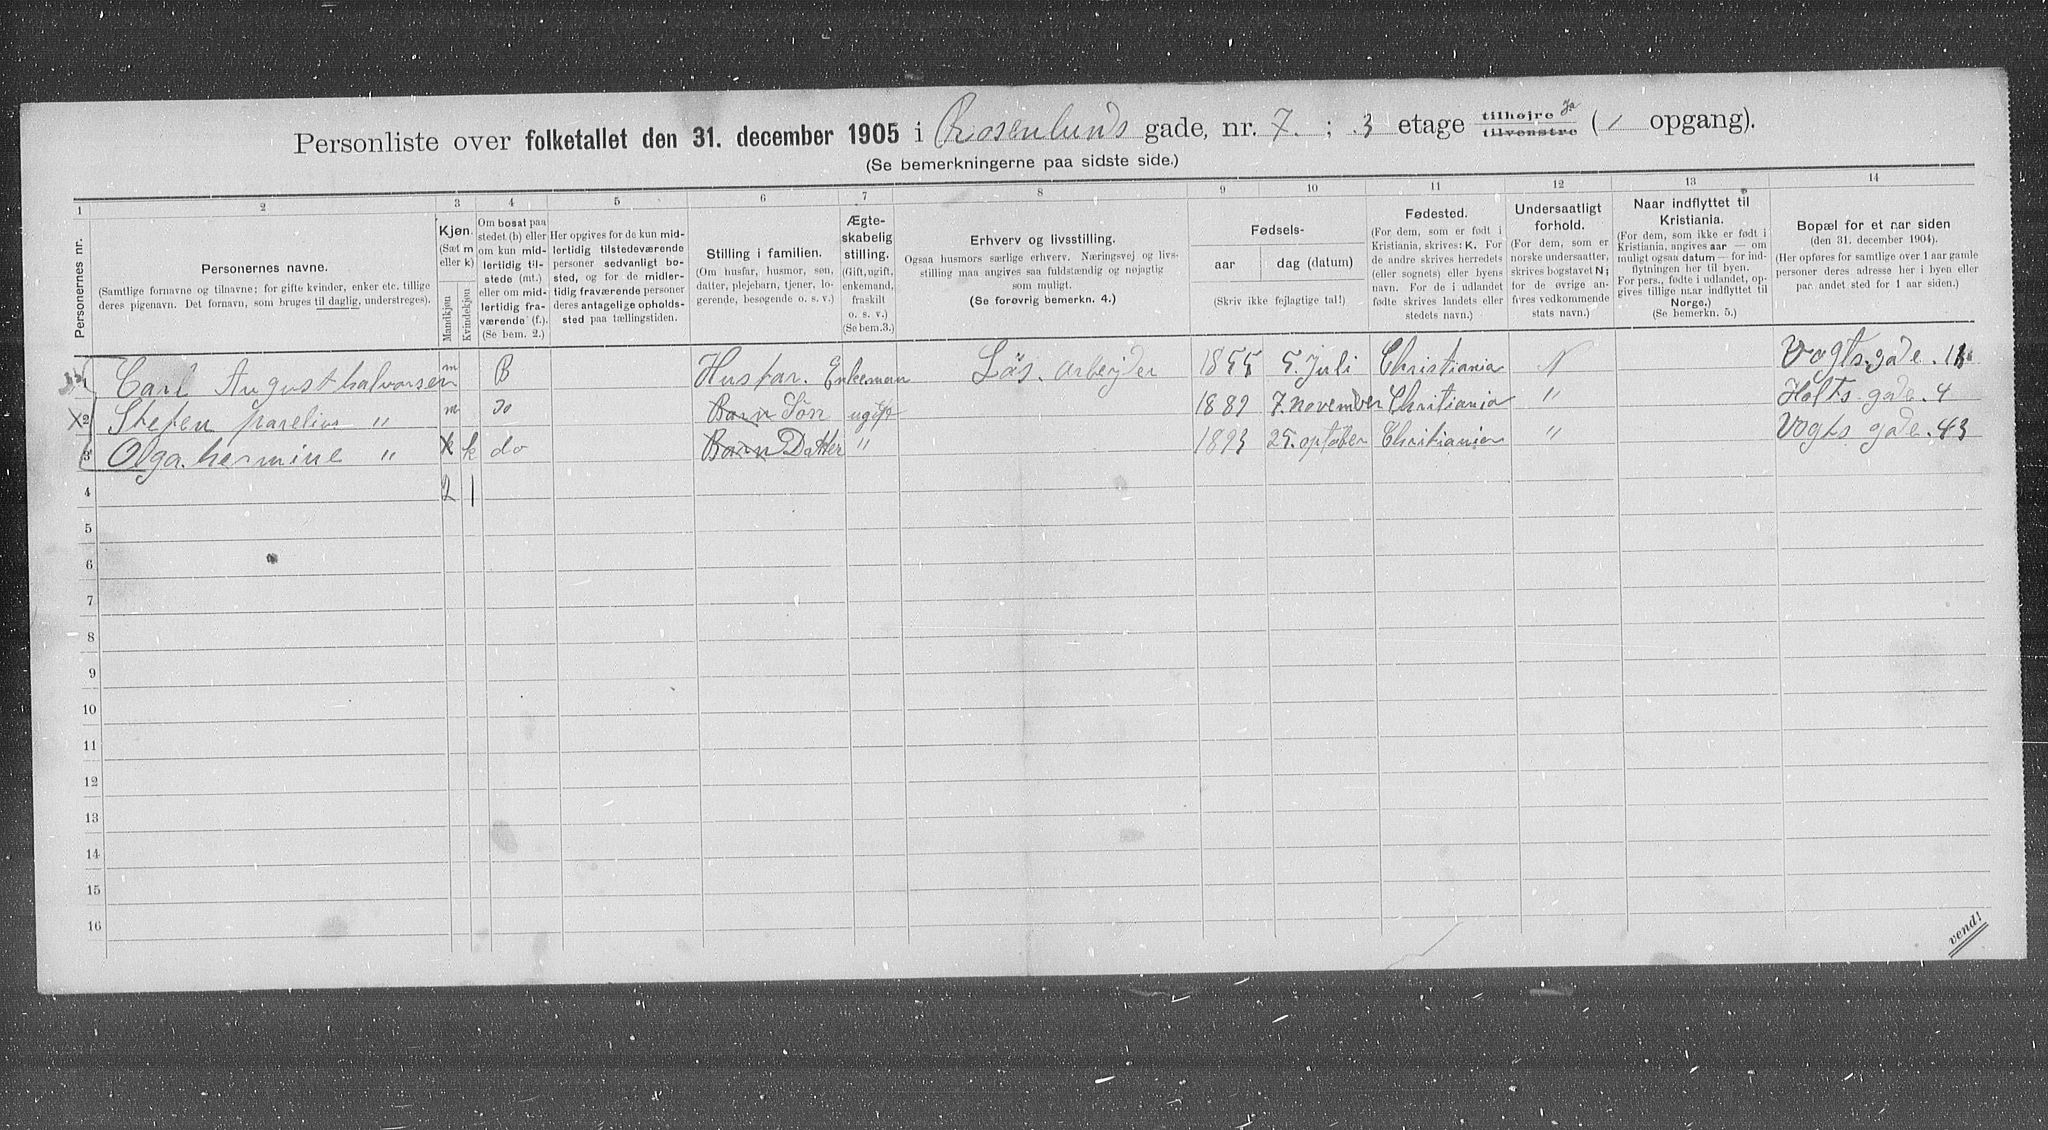 Personliste over folketallet den 31. december 1905 i Rosenlunds gade, nr. 7. ; 3 etage tilhøjre tilvenstre ( 1 opgang).
(Se bemerkningerne paa sidste side.)
1 2 3 4 5 6 7 8 9 10 11 12 13 14
Personernes nr.
Personernes navne.
(Samtlige fornavne og tilnavne; for gifte kvinder, enker etc. tillige
deres pigenavn. Det fornavn, som bruges til daglig, understreges).
Kjøn.
(Sæt m
eller k)
Mandkjøn
Kvindekjøn
Om bosat paa
stedet (b) eller
om kun mid-
lertidig til-
stede (mt.)
eller om mid-
lertidig fra-
værende (f.).
(Se bem. 2.)
Her opgives for de kun mid-
lertidig tilstedeværende
personer sedvanligt bo-
sted, og for de midler-
tidig fraværende personer
deres antagelige opholds-
sted paa tællingstiden.
Stilling i familien.
(Om husfar, husmor, søn,
datter, plejebarn, tjener, lo-
gerende, besøgende o. s. v.)
Ægte-
skabelig
stilling.
(Gift, ugift,
enkemand,
fraskilt
o. s. v.)
(Se bem.3.)
Erhverv og livsstilling.
Ogsaa husmors særlige erhverv. Næringsvej og livs-
stilling maa angives saa fuldstændig og nøjagtig
som muligt.
(Se forøvrig bemerkn. 4.)
Fødsels-
aar dag (datum)
(Skriv ikke fejlagtige tal!)
Fødested.
(For dem, som er født i
Kristiania, skrives: K. For
de andre skrives herredets
(eller sognets) eller byens
navn. For de i udlandet
fødte skrives landets eller
stedets navn.)
Undersaatligt
forhold.
(For dem, som er
norske undersaatter,
skrives bogstavet N;
for de øvrige an-
føres vedkommende
stats navn.)
Naar indflyttet til
Kristiania.
(For dem, som ikke er født i
Kristiania, angives aar — om
muligt ogsaa datum — for ind-
flytningen her til byen.
For pers., fødte i udlandet, op-
gives tillige naar indflyttet til
Norge.)
(Se bemerkn. 5.)
Bopæl for et aar siden
(den 31. december 1904).
(Her opføres for samtlige over 1 aar gamle
personer deres adresse her i byen eller
par. andet sted for 1 aar siden.)
1 Carl August halvorsen m B Husfar. Enkeman Løs. arbejder 1855 5. Juli Christiania N Vogts. gade.
2 Stefen parelius " m do Barn Søn ugift 1889 7. november Christiania " Holts. gade. 4
3 Olga. hermine " k k do Barn Datter " 1893 25. optober Christiania " Vogts gade. 43
4 2 1
5
6
7
8
9
10
11
12
13
14
15
16
vend!